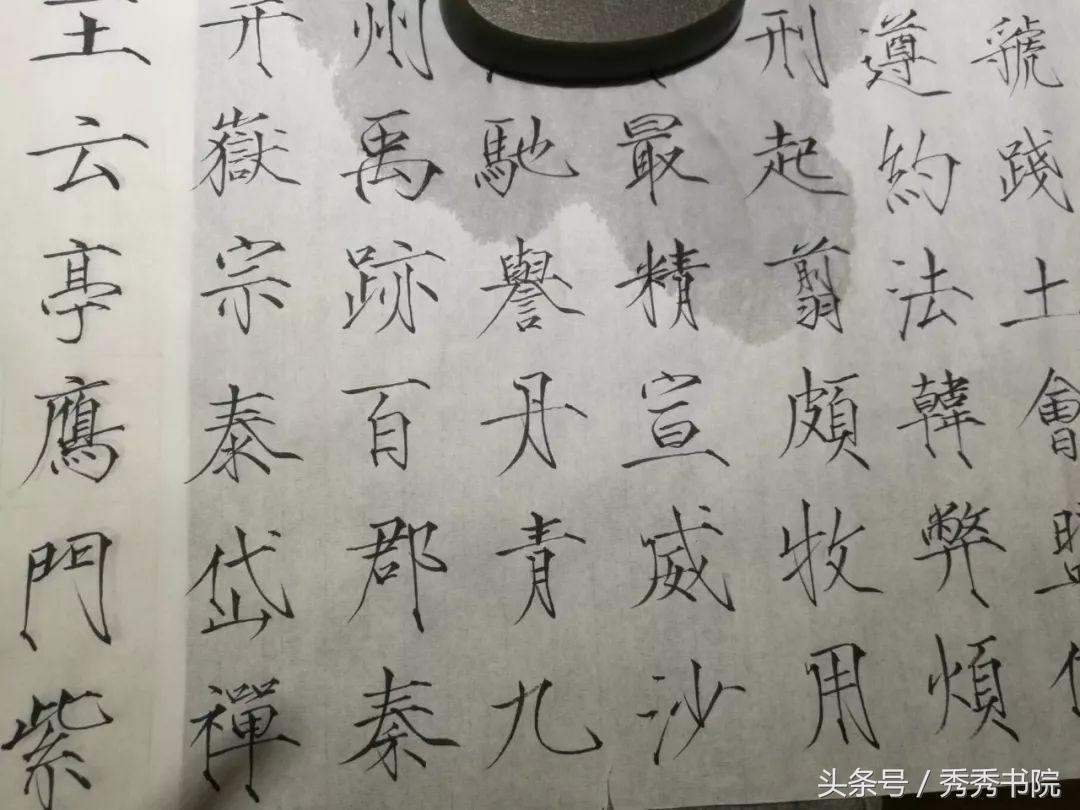 虢踐土會盟
遵約法韓弊煩
刑起翦頗牧用
最精宣威沙
馳譽丹青九
州禹跡百郡秦
嶽宗泰岱禪
云亭鴈門紫
头条号 / 秀秀书院